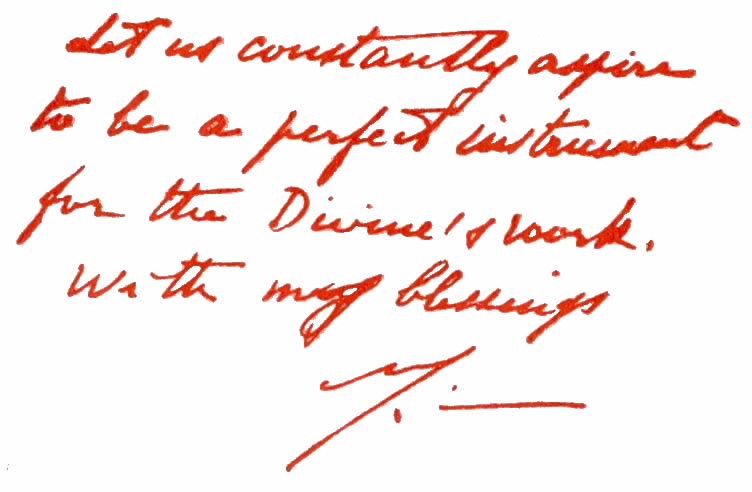 Let us constantly aspire
to be a perfect instrument
for the Divine's work.
With my blessings